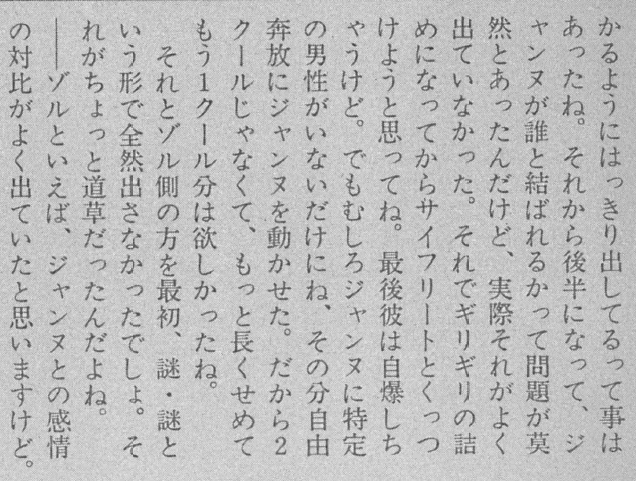 かるようにはっきり出してるって事は
あったね。それから後半になって、ジ
ャンヌが誰と結ばれるかって問題が莫
然とあったんだけど、実際それがよく
出ていなかった。それでギリギリの詰
めになってからサイフリートとくっつ
けようと思ってね。最後彼は自爆しち
ゃうけど。でもむしろジャンヌに特定
の男性がいないだけにね、その分自由
奔放にジャンヌを動かせた。だから2
クールじゃなくて、もっと長くせめて
もう1クール分は欲しかったね。
それとゾル側の方を最初、謎・謎と
いう形で全然出さなかったでしょ。そ
れがちょっと道草だったんだよね。
──ゾルといえば、ジャンヌとの感情
の対比がよく出ていたと思いますけど。